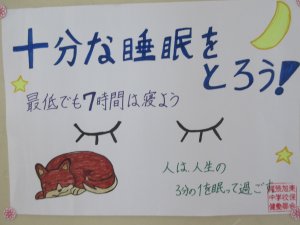 十分な睡眠を
とろう!
最低でも7時間は寝よう
人は、人生の
3分の1を眠って過ごす
中学校保
健委員会